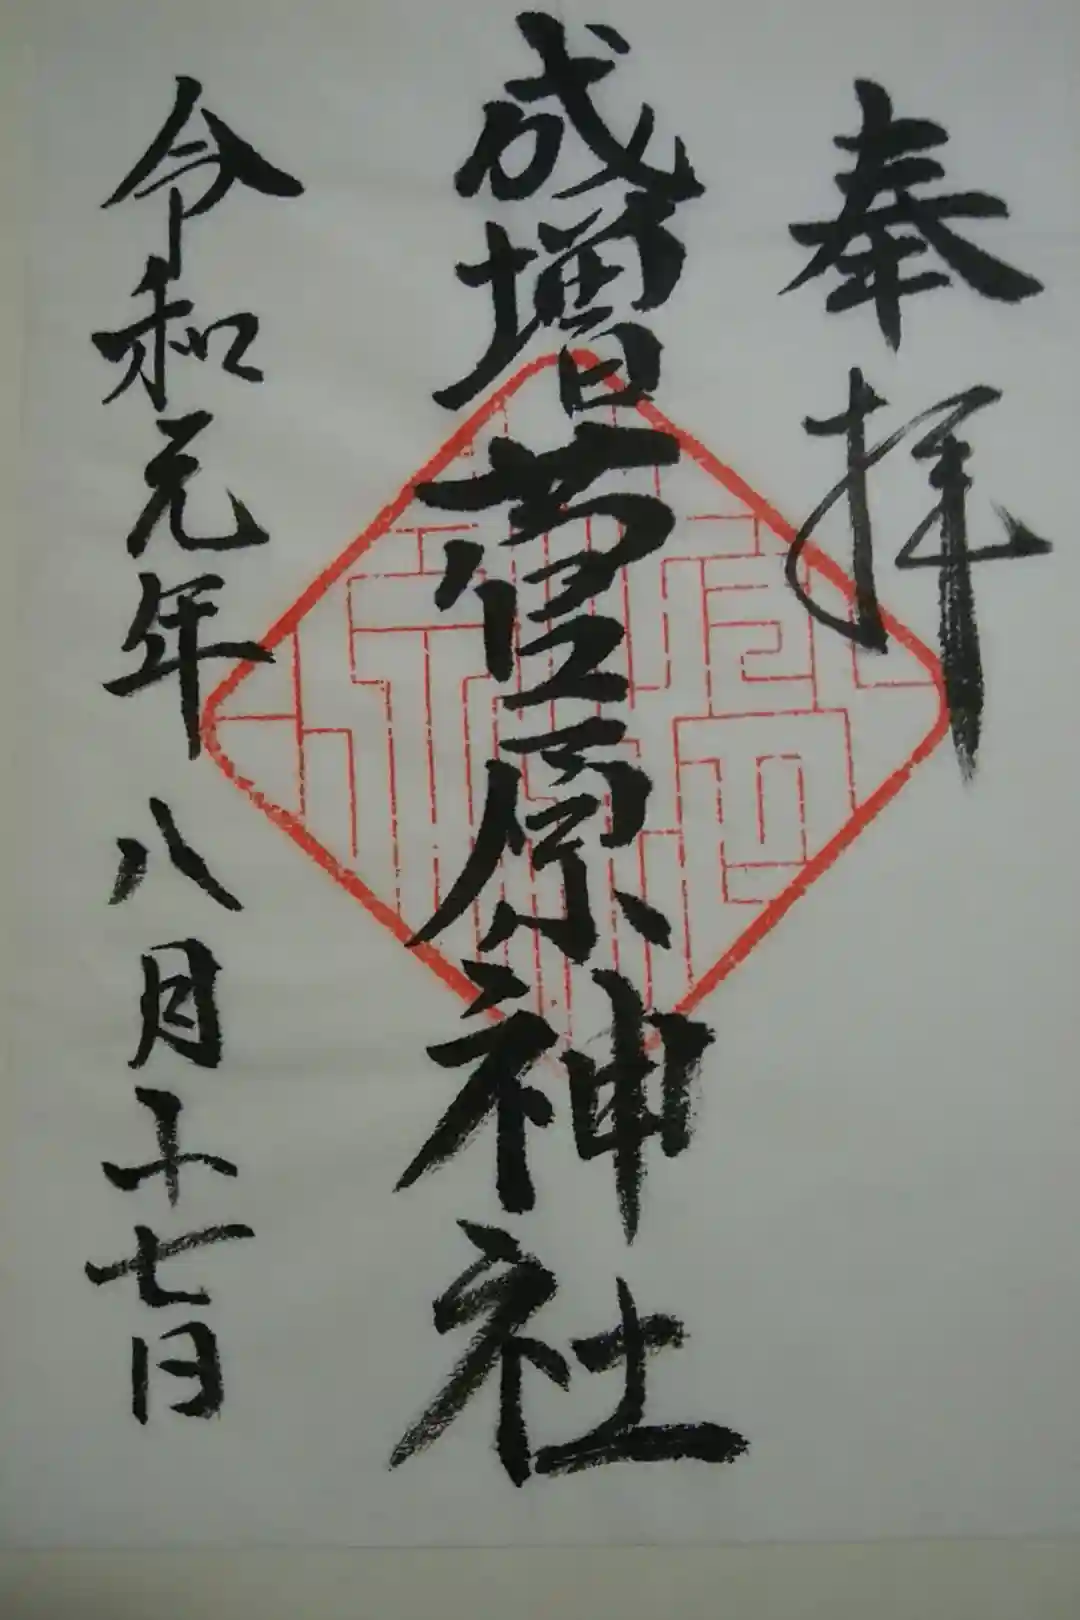 奉拝
成増菅原神社
令和元年八月十七日